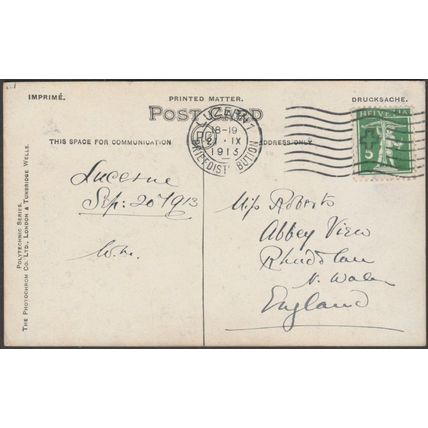 IMPRIMÉ. PRINTED MATTER. DRUCKSACHE.
POST CARD
THIS SPACE FOR COMMUNICATION ADDRESS ONLY
LUZERN 1
18-19
21·IX
1913
BRIEFDISTRIBUTION
HELVETIA
5
Lucerne
Sep: 20/1913
Miss Roberts
Abbey View
Rhuddlan
N. Wales
England
POLYTECHNIC SERIES.
THE PHOTOCHROM CO. LTD., LONDON & TUNBRIDGE WELLS.